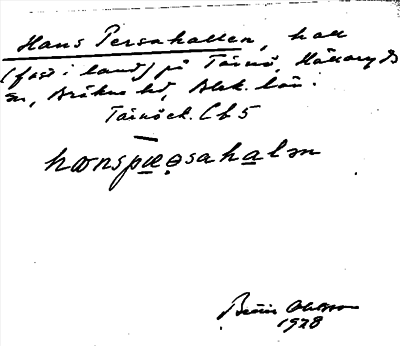 Hans Persahallen, hall
(fast i land) på Tärnö, Hällaryds
sn, Bräkne hd, Blek. län.
Tärnö ek. Cb5
hanspæəsahalən
1928